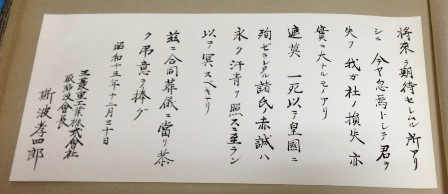 将來ヲ期待セシムル所アリ
シニ今ヤ忽焉トシテ君ヲ
失フ我ガ社ノ損失亦
實ニ大ナルモノアリ
遮莫一死以テ皇國ニ
殉ゼラレタル諸氏ノ赤誠ハ
永ク汗青ヲ照スニ至ラン
以テ冥スベキナリ
茲ニ合同葬儀ニ當リ恭
ク弔意ヲ捧グ
昭和十五年十二月二十日
三菱重工業株式會社
取締役會長
斯波孝四郎